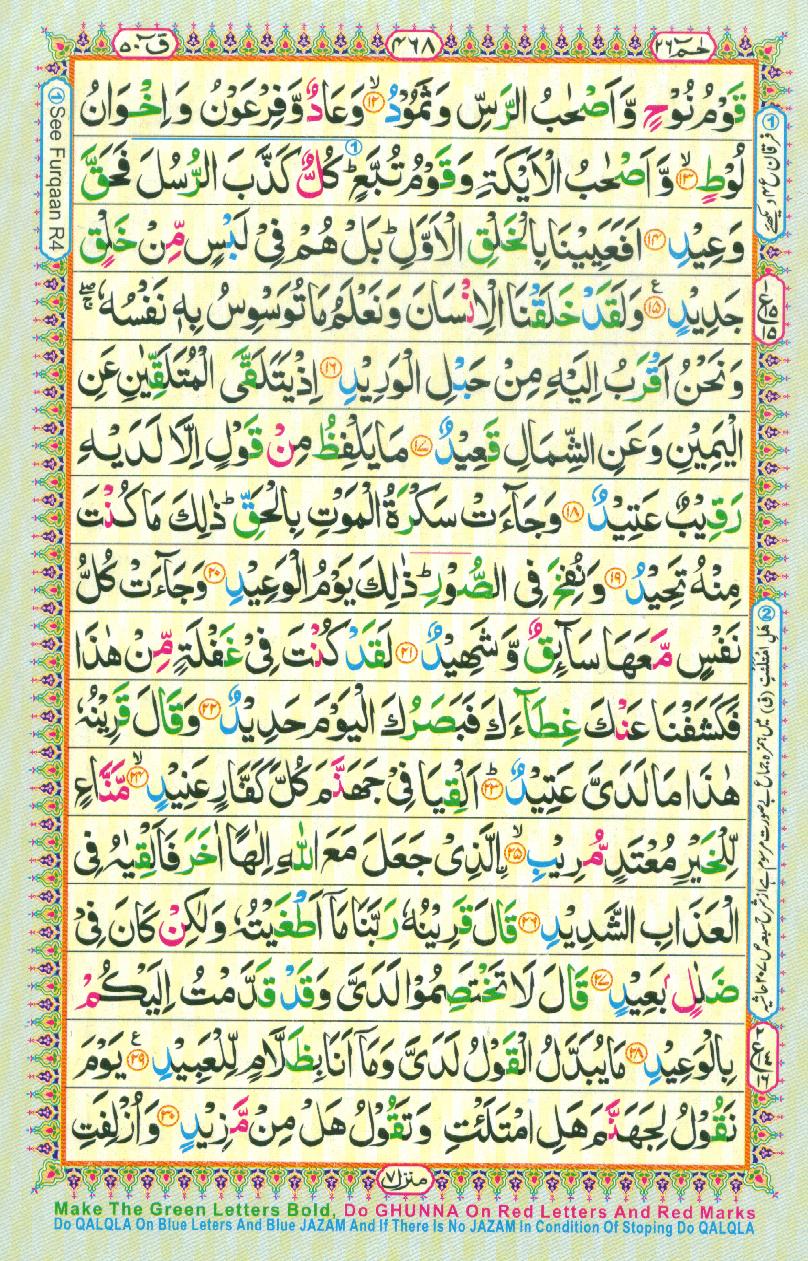 حٰمٓ ٢٦
٤٦٨
قٓ ٥٠
قَوْمُ نُوْحٍ وَّاَصْحٰبُ الرَّسِّ وَثَمُوْدُ ۙ‏﴿۱۲﴾ وَعَادٌ وَّفِرْعَوْنُ وَاِخْوَانُ
لُوْطٍ ۙ‏﴿۱۳﴾ وَّاَصْحٰبُ الْاَيْكَةِ وَقَوْمُ تُبَّعٍ ؕ① كُلٌّ كَذَّبَ الرُّسُلَ فَحَقَّ
وَعِيْدِ ‏﴿۱۴﴾ اَفَعَيِيْنَا بِالْخَلْقِ الْاَوَّلِ ؕ بَلْ هُمْ فِيْ لَبْسٍ مِّنْ خَلْقٍ
جَدِيْدٍ ‏﴿۱۵﴾ ع وَلَقَدْ خَلَقْنَا الْاِنْسَانَ وَنَعْلَمُ مَا تُوَسْوِسُ بِهٖ نَفْسُهٗ ۖۚ
وَنَحْنُ اَقْرَبُ اِلَيْهِ مِنْ حَبْلِ الْوَرِيْدِ ‏﴿۱۶﴾ اِذْ يَتَلَقَّى الْمُتَلَقِّيٰنِ عَنِ
الْيَمِيْنِ وَعَنِ الشِّمَالِ قَعِيْدٌ ‏﴿۱۷﴾ مَا يَلْفِظُ مِنْ قَوْلٍ اِلَّا لَدَيْهِ
رَقِيْبٌ عَتِيْدٌ ‏﴿۱۸﴾ وَجَآءَتْ سَكْرَةُ الْمَوْتِ بِالْحَقِّ ؕ ذٰلِكَ مَا كُنْتَ
مِنْهُ تَحِيْدُ ‏﴿۱۹﴾ وَنُفِخَ فِي الصُّوْرِ ؕ ذٰلِكَ يَوْمُ الْوَعِيْدِ ‏﴿۲۰﴾ وَجَآءَتْ كُلُّ
نَفْسٍ مَّعَهَا سَآئِقٌ وَّشَهِيْدٌ ‏﴿۲۱﴾ لَقَدْ كُنْتَ فِيْ غَفْلَةٍ مِّنْ هٰذَا
فَكَشَفْنَا عَنْكَ غِطَآءَكَ فَبَصَرُكَ الْيَوْمَ حَدِيْدٌ ‏﴿۲۲﴾ وَقَالَ قَرِيْنُهٗ
هٰذَا مَا لَدَيَّ عَتِيْدٌ ؕ‏﴿۲۳﴾ اَلْقِيَا فِيْ جَهَنَّمَ كُلَّ كَفَّارٍ عَنِيْدٍ ۙ‏﴿۲۴﴾ مَّنَّاعٍ
لِّلْخَيْرِ مُعْتَدٍ مُّرِيْبِ ۙ‏﴿۲۵﴾ ِ۟الَّذِيْ جَعَلَ مَعَ اللّٰهِ اِلٰهًا اٰخَرَ فَاَلْقِيٰهُ فِي
الْعَذَابِ الشَّدِيْدِ ‏﴿۲۶﴾ قَالَ قَرِيْنُهٗ رَبَّنَا مَآ اَطْغَيْتُهٗ وَلٰكِنْ كَانَ فِيْ
ضَلٰلٍۭ بَعِيْدٍ ‏﴿۲۷﴾ قَالَ لَا تَخْتَصِمُوْا لَدَيَّ وَقَدْ قَدَّمْتُ اِلَيْكُمْ
بِالْوَعِيْدِ ‏﴿۲۸﴾ مَا يُبَدَّلُ الْقَوْلُ لَدَيَّ وَمَآ اَنَا بِظَلَّامٍ لِّلْعَبِيْدِ ‏﴿۲۹﴾ ع يَوْمَ
نَقُوْلُ لِجَهَنَّمَ هَلِ امْتَلَئْتِ وَتَقُوْلُ هَلْ مِنْ مَّزِيْدٍ ‏﴿۳۰﴾ وَاُزْلِفَتِ
① فرقان ع ۴ دیکھئے
① See Furqaan R4
منزل ۷
Make The Green Letters Bold, Do GHUNNA On Red Letters And Red Marks
Do QALQLA On Blue Leters And Blue JAZAM And If There Is No JAZAM In Condition Of Stoping Do QALQLA